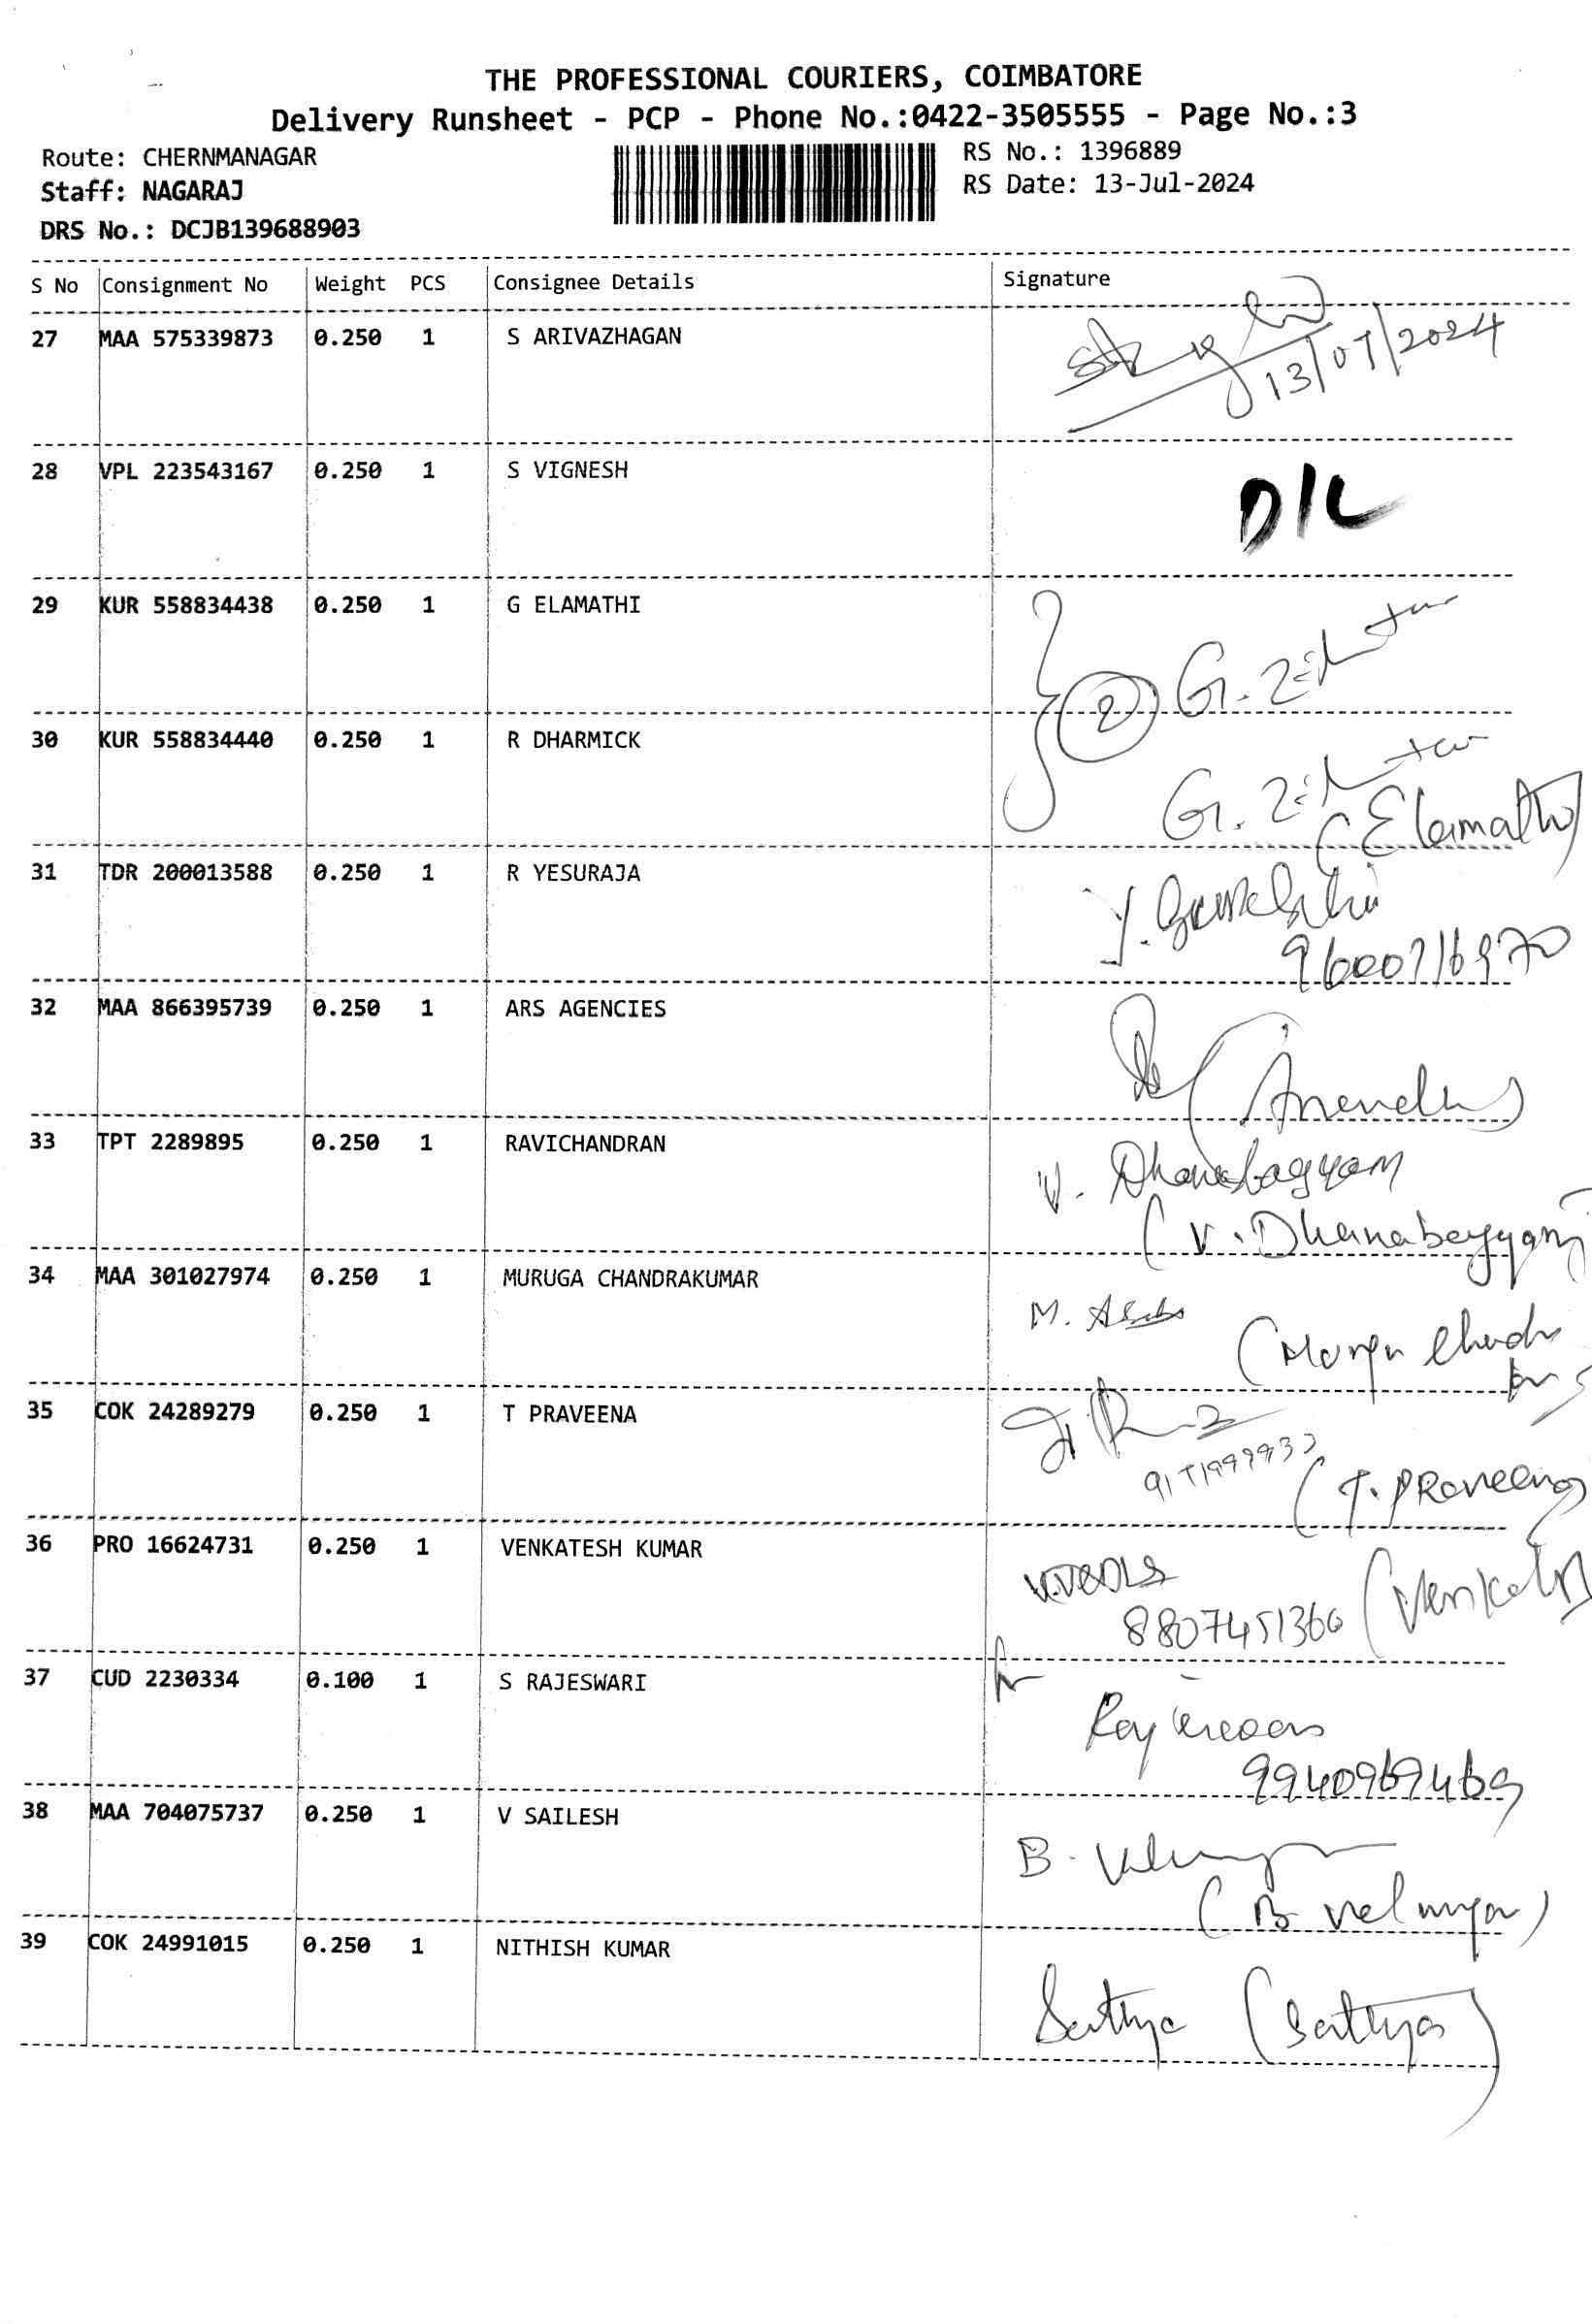 THE PROFESSIONAL COURIERS, COIMBATORE
Delivery Runsheet - PCP - Phone No.:0422-3505555 - Page No.:3
Route: CHERNMANAGAR
RS No.: 1396889
Staff: NAGARAJ
RS Date: 13-Jul-2024
DRS No.: DCJB139688903
S No Consignment No Weight PCS Consignee Details Signature
27 MAA 575339873 0.250 1 S ARIVAZHAGAN
13/07/2024
28 VPL 223543167 0.250 1 S VIGNESH
D/L
29 KUR 558834438 0.250 1 G ELAMATHI
2 G.
30 KUR 558834440 0.250 1 R DHARMICK
G.
(Elamathi)
31 TDR 200013588 0.250 1 R YESURAJA
Y.
32 MAA 866395739 0.250 1 ARS AGENCIES
33 TPT 2289895 0.250 1 RAVICHANDRAN
V. Dhanabagyam
(V. Dhanabagyam)
34 MAA 301027974 0.250 1 MURUGA CHANDRAKUMAR
M.
35 COK 24289279 0.250 1 T PRAVEENA
(T. PRaveena)
36 PRO 16624731 0.250 1 VENKATESH KUMAR
8807451366
37 CUD 2230334 0.100 1 S RAJESWARI
9940969469
38 MAA 704075737 0.250 1 V SAILESH
B.
39 COK 24991015 0.250 1 NITHISH KUMAR
Sathya (Sathya)